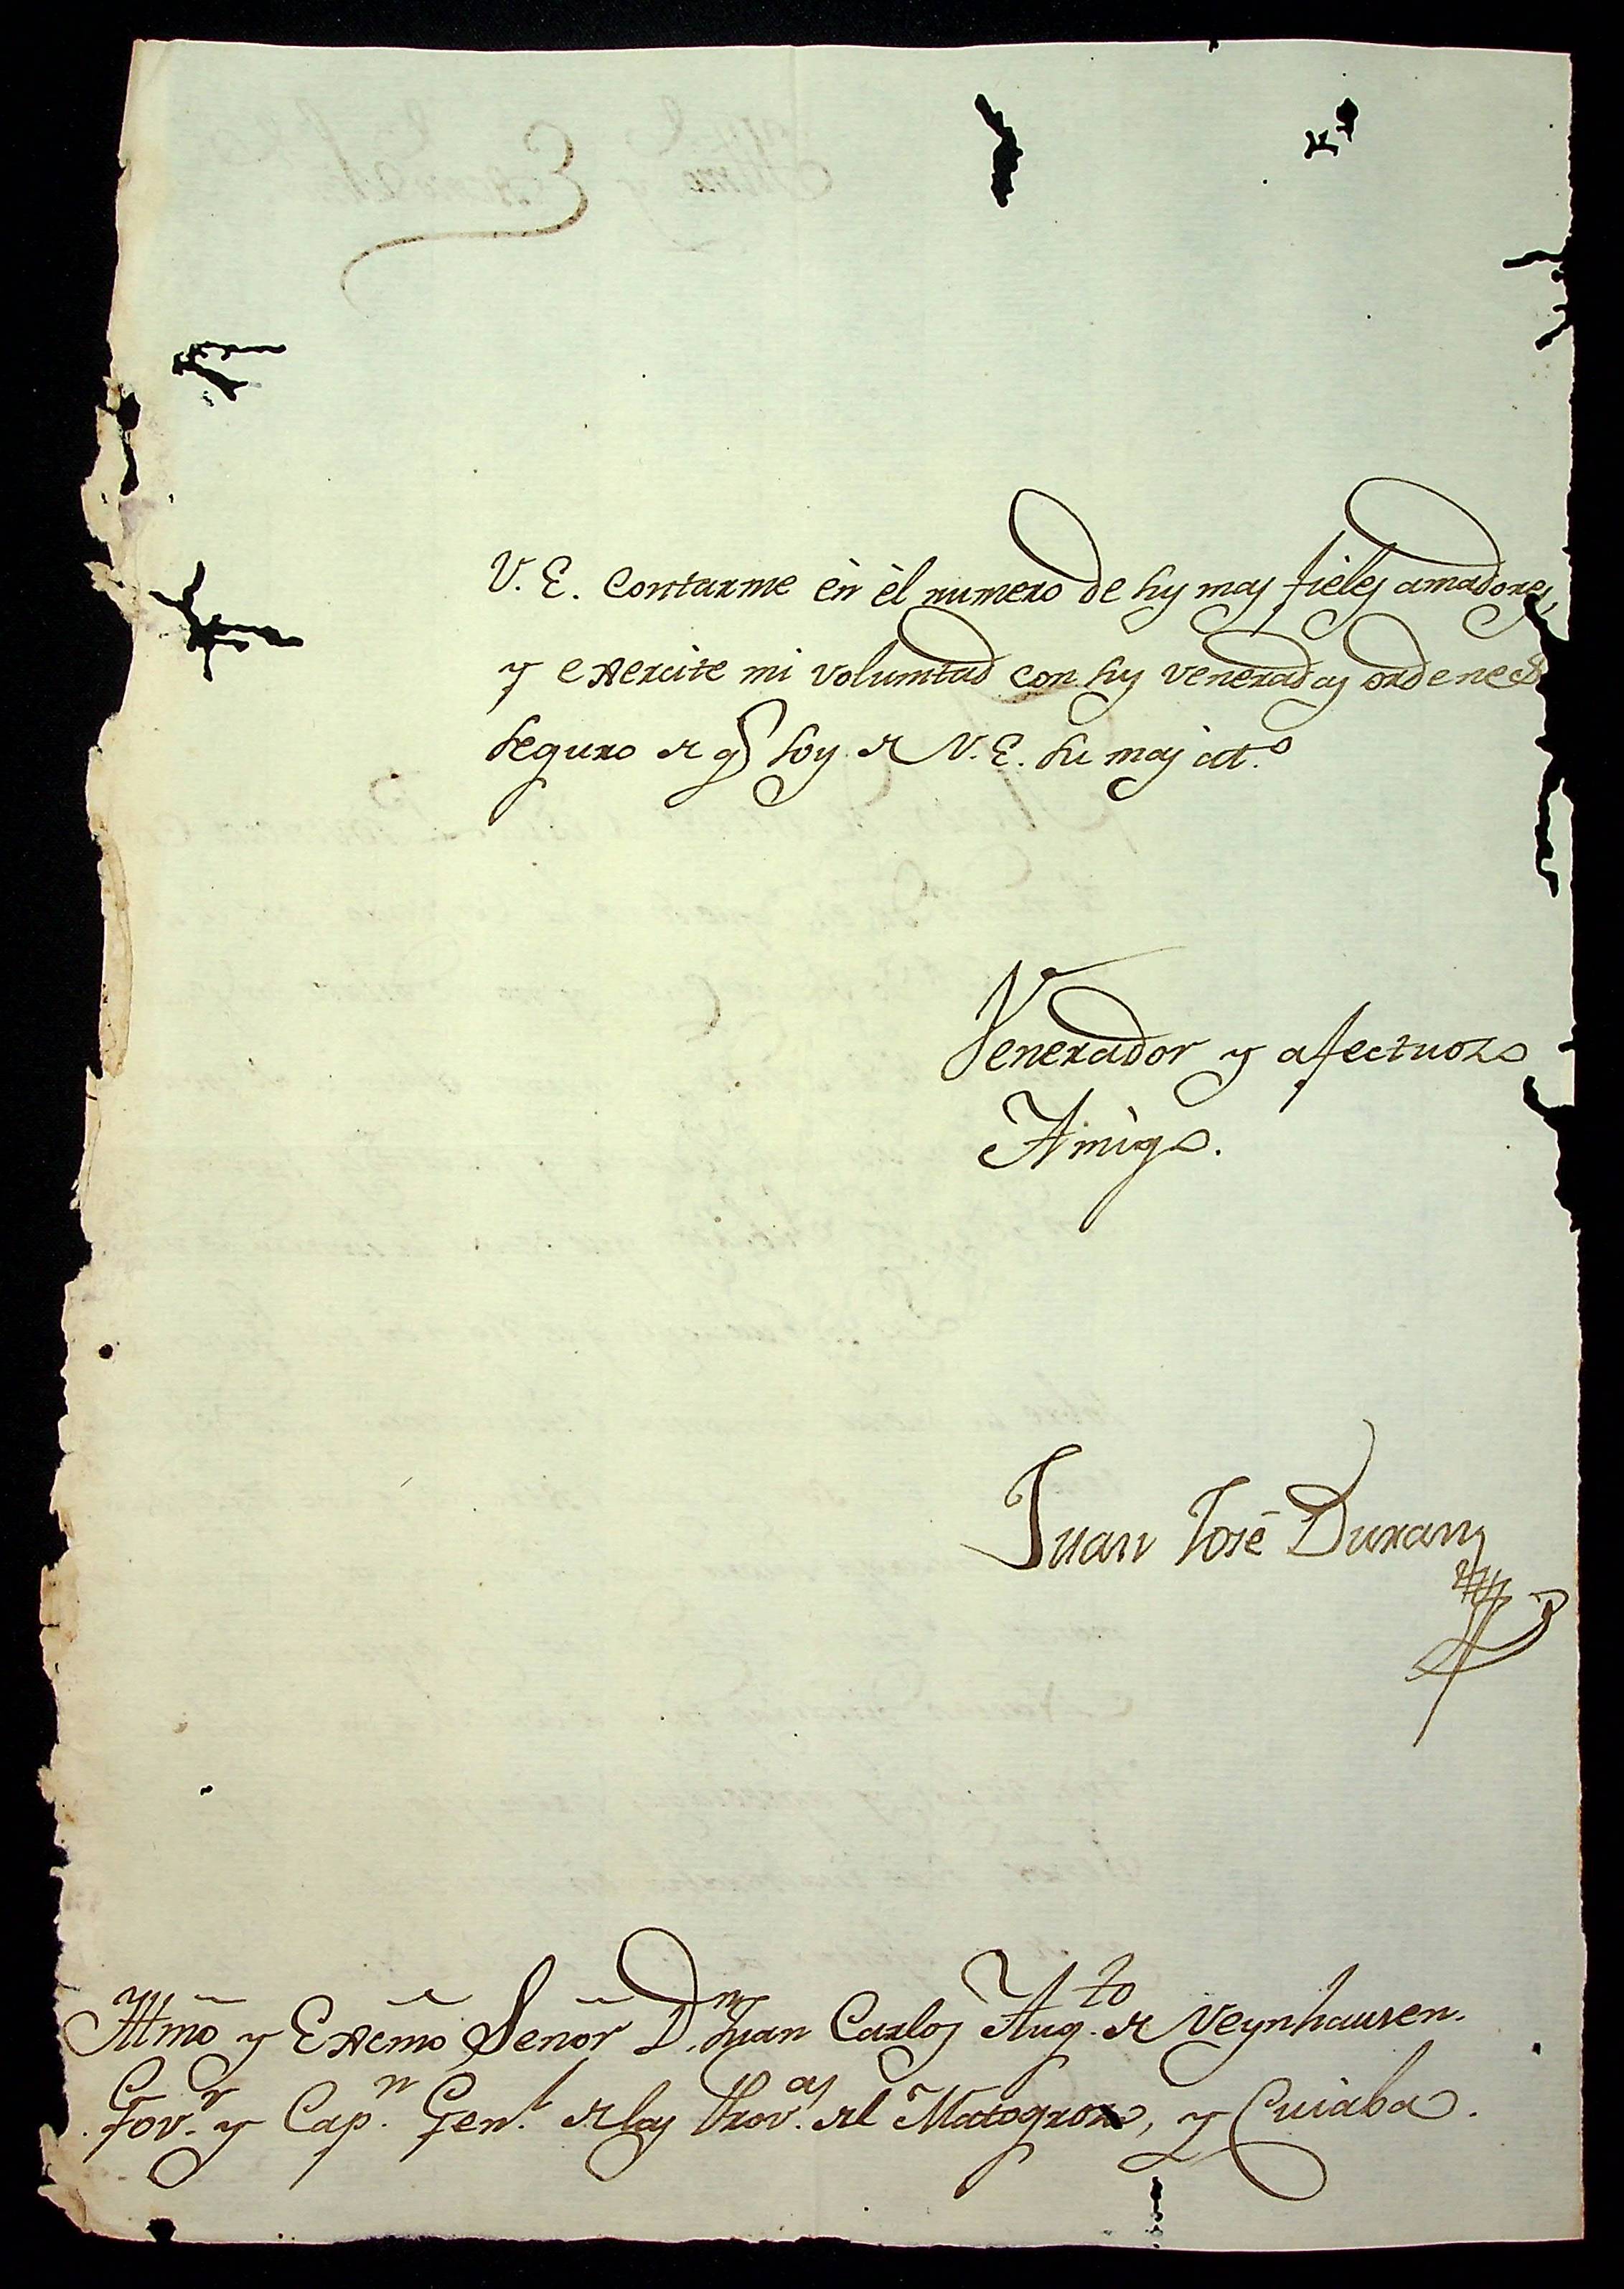 V. E. contarme èn èl numero de sus mas fieles amadores,
y exercite mi volumtad con sus veneradas ordenes
seguro de q.e soy de V. E. su mas at.o
Venerador y afectuoso
Amigo.
Juan José Duran
Ill̃mo y Exc̃mo Señor D.n Juan Carlos Aug.to de Veynhausen.
Gov.r y Cap.n Gen.l de las Prov.as del Matogroso, y Cuiaba.